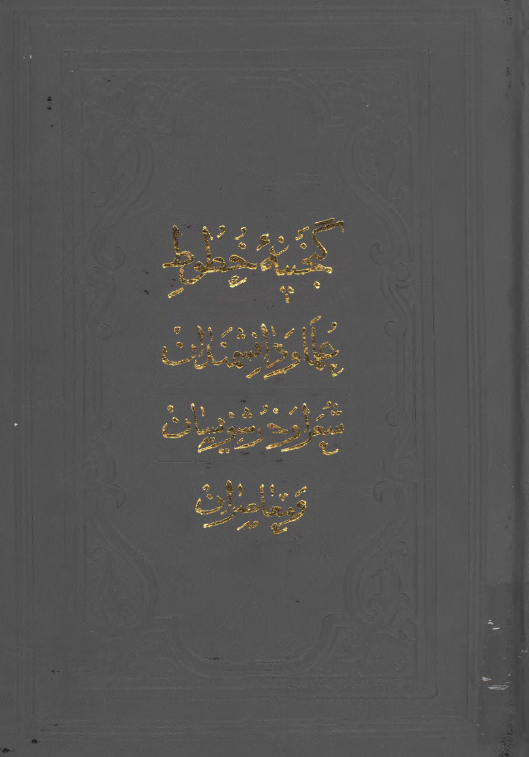 گنجینهٔ خُطُوطِ
عُلَمٰاو دٰانِشمَندٰانْ
شُعَرٰاوَخوُشنِویسٰانْ
وَمعٰاصِرٰانْ